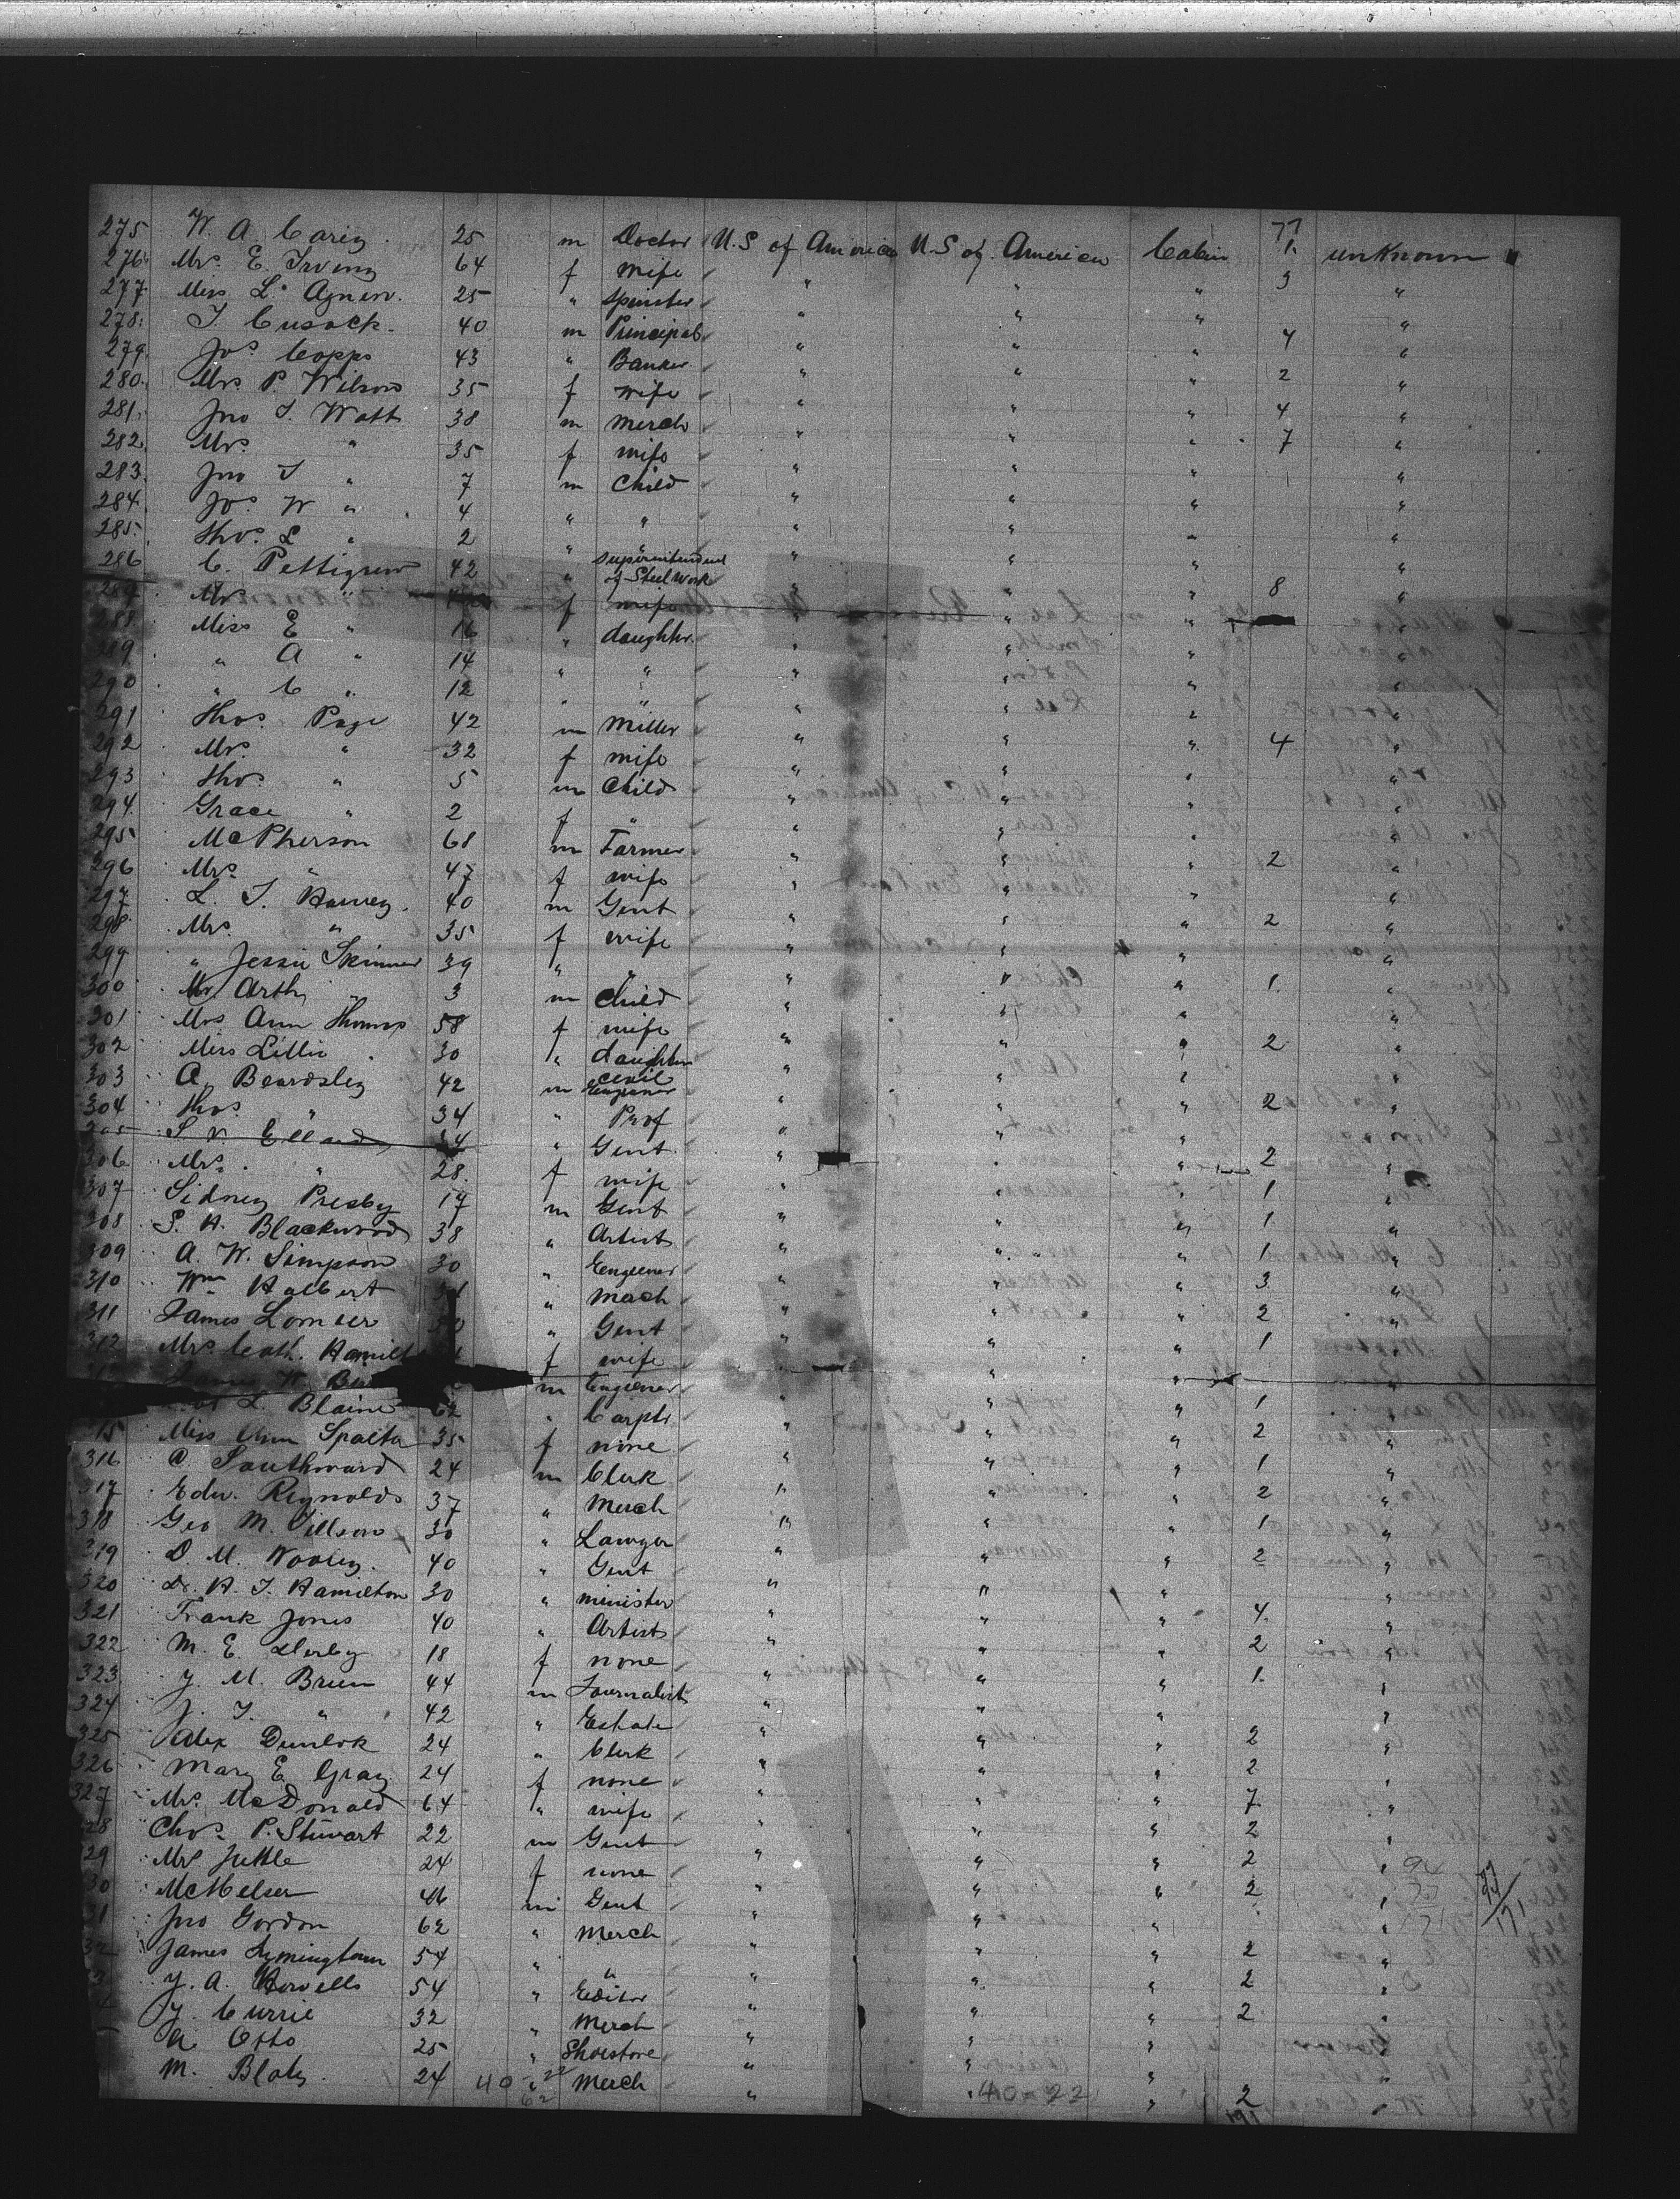 77
275 W. A. Carey 25 m Doctor U.S of America U.S of America Cabin 1. unknown
276 Mrs. E. Irving 64 f wife " " " 3 "
277 Miss L. Agnew. 25 " spinster " " " "
278 T. Cusack. 40 m Principal " " " 4 "
279 Jos. Copps 43 " Banker " " " 2 "
280 Mrs. P. Wilson 35 f wife " " " 4 "
281 Jno T. Watt 38 m merch " " " 7 "
282 Mrs. " 35 f wife " " " "
283 Jno T " 7 m Child " " " "
284 Jos. W " 4 " " " " " "
285 Thos. L " 2 " " " " " "
286 C. Pettigrew 42 " Superintendent of Steel Work " " " 8 "
Mrs " f wife " " "
288 Miss E " 16 " daughter " " " "
289 " A " 14 " " " " " "
290 " C " 12 " " " " " "
291 Thos. Page 42 m Miller " " " 4 "
292 Mrs. " 32 f wife " " " "
293 Thos. " 5 m Child " " " "
294 Grace " 2 f " " " " "
295 McPherson 68 m Farmer " " " 2 "
296 Mrs. " 47 f wife " " " "
297 L. T. Harvey 40 m Gent " " " 2 "
298 Mrs. " 35 f wife " " " "
299 " Jessie Skinner 39 " " " " " 1 "
300 Mr. Arth. " 3 m child " " " "
301 Mrs Ann Thomps 58 f wife " " " 2 "
302 Miss Lillie 30 " daughter " " " "
303 A. Beardsley 42 m civil Engineer " " " 2 "
304 Thos. " 34 " Prof " " " "
305 34 " Gent " " " 2 "
306 Mrs. " 28. f wife " " " "
307 Sidney Presby 19 m Gent " " " 1 "
308 S. H. Blackwood 38 " Artist " " " 1 "
309 A. W. Simpson 30 " Engineer " " " 1 "
310 Wm Halbert " Mach " " " 3 "
311 James " Gent " " " 2 "
312 Mrs. Cath. Hamilt f wife " " " 1 "
James W. m Engineer " " "
L. Blaine 62 " Carptr " " " 1 "
315 Miss Ann Spalta 35 f none " " " 2 "
316 A. Southward 24 m Clerk " " " 1 "
317 Edw. Reynolds 37 " Merch " " " 2 "
318 Geo M. Tillson 30 " Lawyer " " " 1 "
319 D. M. Wooley 40 " Gent " " " 2 "
320 Dr. H. T. Hamilton 30 " minister " " " "
321 Frank Jones 40 " Artist " " " 4 "
322 M. E. Derby 18 f none " " " 2 "
323 J. M. Brien 44 m Journalist " " " 1 "
324 J. T. " 42 " Estate " " " "
325 Alex Dunlok 24 " Clerk " " " 2 "
326 Mary E. Gray 24 f none " " " 2 "
327 Mrs. McDonald 64 " wife " " " 7 "
28 Chas. P. Stewart 22 m Gent " " " 2 "
29 Mrs Juttle 24 f none " " " 2 " 94
30 McNelser 46 m Gent " " " 2 " 77
31 Jno Gordon 62 " Merch " " " " 171
32 James Symingtown 54 " " " " " 2 "
3 J. A. Howells 54 " Editor " " " 2 "
J. Currie 32 " Merch " " " 2 "
A. Otto 25 " Shoestore " " " "
M. Blaky 24 " Merch " " " 2 "
40 22 62 40 = 22 191